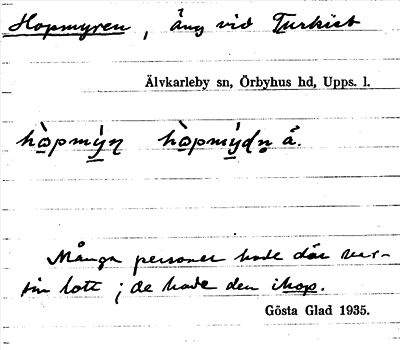 Hopmyren, äng vid Turkist
Älvkarleby sn, Örbyhus hd, Upps. l.
hòpmýn hòpmýdn å.
Många personer hade där var-
sin lott; de hade den ihop.
Gösta Glad 1935.